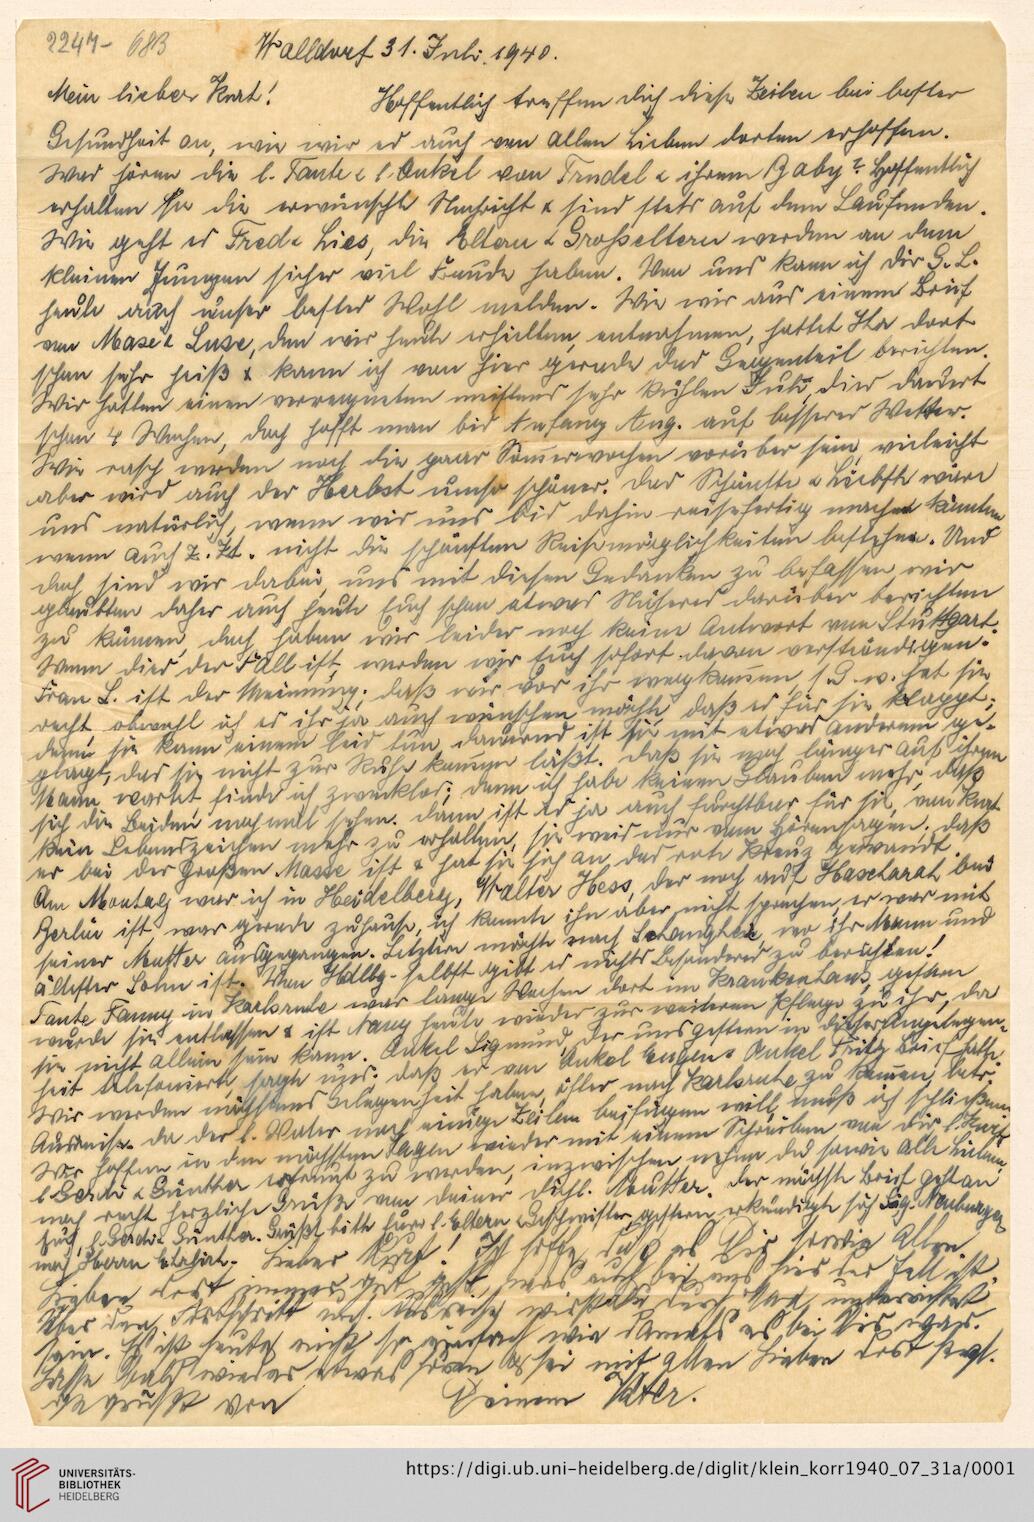 2247- 68B
Walldorf 31. Juli 1940.
Mein lieber Kurt! Hoffentlich treffen dich diese Zeilen bei bester
Gesundheit an, wie wir es auch von allen Lieben dorten erhoffen.
Was hören die l. Tante & l. Onkel von Trudel & ihrem Baby? Hoffentlich
erhalten sie die erwünschte Nachricht & sind stets auf dem Laufenden.
Wie geht es Fred & Lies, die Eltern & Grosseltern werden an dem
kleinen Jungen sicher viel Freude haben. Von uns kann ich dir G. L.
heute auch unser bestes Wohl melden. Wie wir aus einem Brief
von Mase & Luse, den wir heute erhielten, entnahmen, hattet Ihr dort
schon sehr heiß & kann ich von hier gerade das Gegenteil berichten.
Wir hatten einen verregneten meistens sehr kühlen Juli, dies dauert
schon 4 Wochen, doch hofft man bis Anfang Aug. auf besseres Wetter.
Wie rasch werden noch die paar Sommerwochen vorüber sein, vieleicht
aber wird auch der Herbst umso schöner. Das Schönste & Liebste wäre
uns natürlich, wenn wir uns bis dahin reisefertig machen könnten
wenn auch z. Zt. nicht die schönsten Reisemöglichkeiten bestehen. Und
doch sind wir dabei, uns mit diesen Gedanken zu befassen wir
glaubten daher auch heute Euch schon etwas Näheres darüber berichten
zu können, doch haben wir leider noch keine Antwort von Stuttgart.
Wenn dies der Fall ist, werden wir Euch sofort davon verständigen.
Frau L. ist der Meinung, daß wir vor ihr wegkommen, s. G. w. hat sie
recht obwohl ich es ihr ja auch wünschen möchte, daß es für sie klappt;
denn sie kann einem leid tun, dauernd ist sie mit etwas anderem ge-
plagt, das sie nicht zur Ruhe kommen läßt. Daß sie noch länger auf ihren
Mann wartet finde ich zwecklos; denn ich habe keinen Glauben mehr, daß
sich die Beiden nochmal sehen. Dann ist es ja auch furchtbar für sie, von Kurt
kein Lebenszeichen mehr zu erhalten, sie weis nur vom Hörensagen, daß
er bei der großen Masse ist & hat sie sich an das rote Kreuz gewandt.
Am Montag war ich in Heidelberg, Walter Hess, der noch auf Hascharat bei
Berlin ist, war gerade zuhause, ich konnte ihn aber nicht sprechen, er war mit
seiner Mutter ausgegangen. Letztere möchte nach Schanghai, wo ihr Mann und
ältester Sohn ist. Von Hdlbg. selbst gibt es nichts Besonderes zu berichten!
Tante Fanny in Karlsruhe war lange Wochen dort im Krankenhaus, gestern
wurde sie entlassen & ist Nany heute wieder zur weiteren Pflege zu ihr, da
sie nicht allein sein kann. Onkel Sigmund, der uns gestern in dieser Angelegen-
heit telefonierte, sagte uns, daß er von Onkel Eugen & Onkel Fritz Brief hätte.
Wir werden nächstens Gelegenheit haben, öfter nach Karlsruhe zu kommen, betr.
Ausreise. Da der l. Vater noch einige Zeilen beifügen will, muß ich schließen
Wir hoffen in den nächsten Tagen wieder mit einem Schreiben von dir l. Kurt
l. Gerdi & Günther erfreut zu werden, inzwischen nehme du sowie alle Lieben,
noch recht herzliche Grüße von deiner dichl. Mutter. Der nächste Brief geht an
Euch, l. Gerdi & Günther. Grüßt bitte Eure l. Eltern & Geschwister, gestern erkundigte sich Sig. Neuburger
nach Herrn Ehrhart. Lieber Kurt! Ich hoffe, daß es Dir sowie Allen
Lieben dort immer gut geht, was auch bei uns hier der Fall ist.
Über den Fortschritt uns. Ausreise wirst du durch Mad. unterrichtet
sein. Es ist heute nicht so einfach wie damals es bei Dir war.
Lasse bald wieder etwas hören & sei mit allen Lieben dort herzl.
gegrüßt von Deinem Vater.
UNIVERSITÄTS-
BIBLIOTHEK
HEIDELBERG
https://digi.ub.uni-heidelberg.de/diglit/klein_korr1940_07_31a/0001